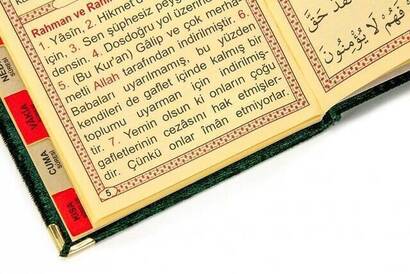 Rahman ve Rahî
1. Yâsîn, 2. Hikmet
için, 3. Sen şüphesiz peyg
densin. 4. Dosdoğru yol üzerin
5. (Bu Kur'an) Gâlip ve çok merha
metli Allah tarafından indirilmiştir. 6.
Babaları uyarılmamış, bu yüzden
kendileri de gaflet içinde kalmış bir
toplumu uyarman için indirilmiş-
tir. 7. Yemin olsun ki onların çoğu
gafletlerinin cezasını hak etmişler-
dir. Çünkü onlar îmân etmiyorlar.
5
فَهُمْ لَا يُؤْمِنُونَ
VÂKIA
CUMA
SÛRESİ
KISA